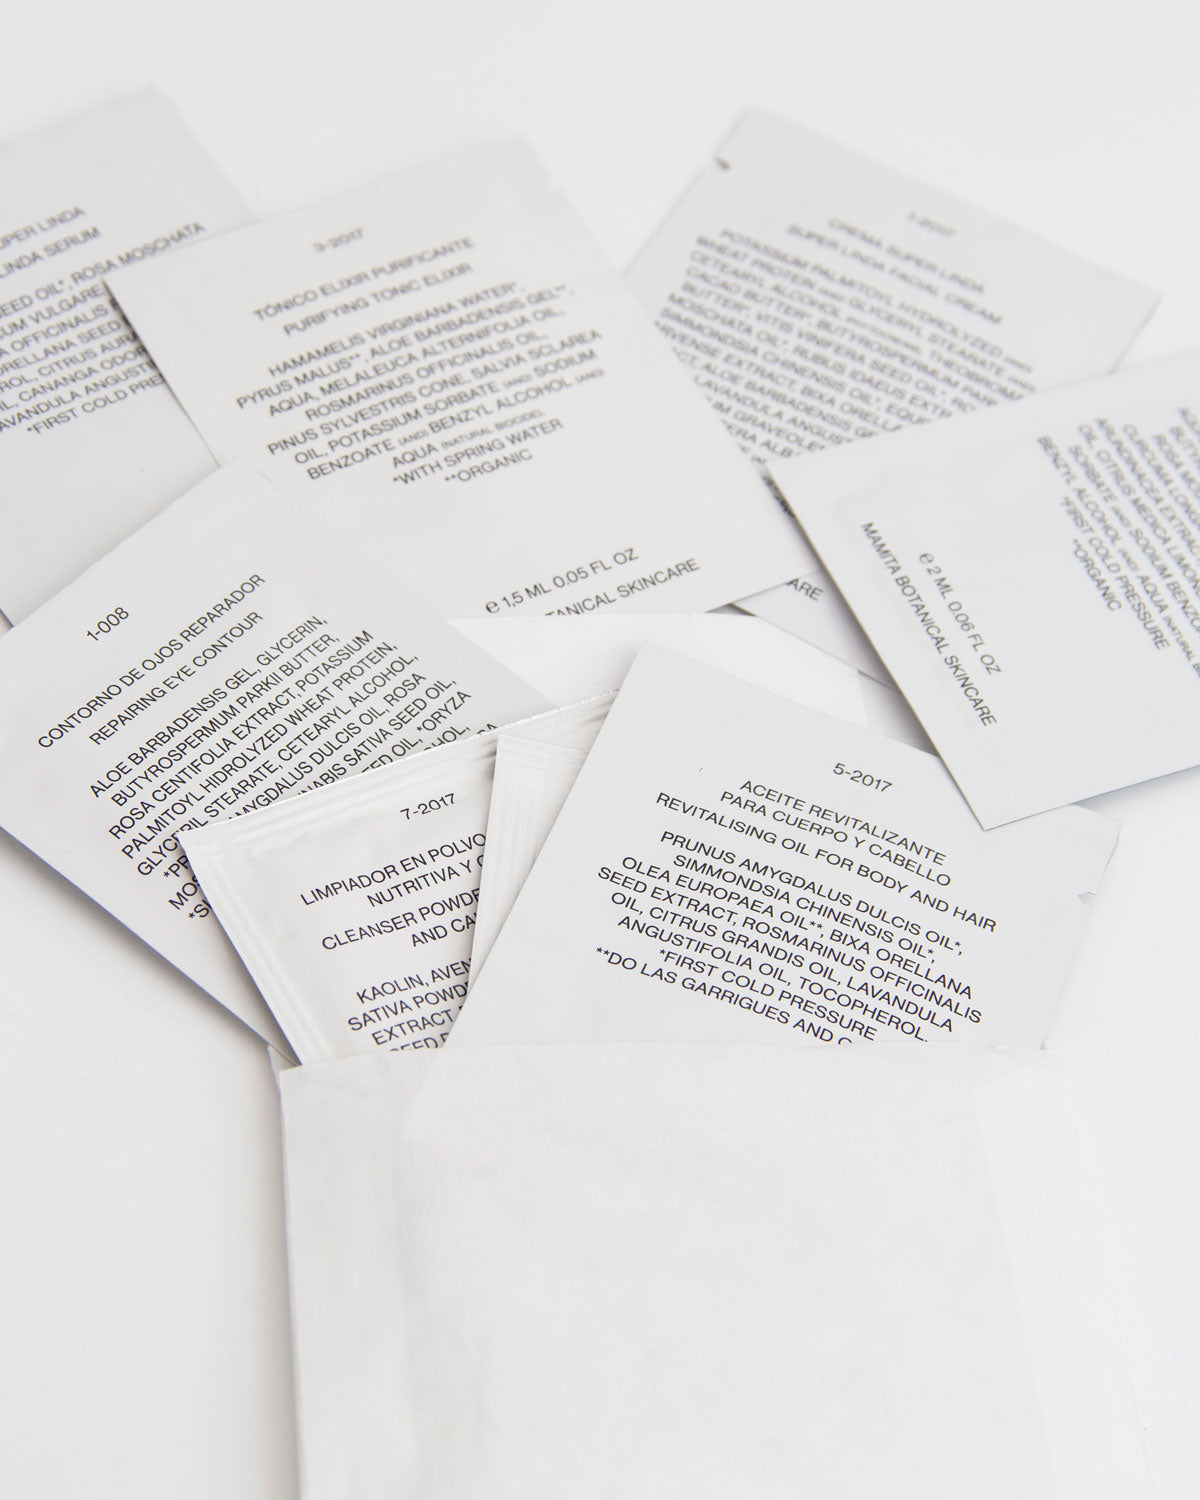 SUPER LINDA
LINDA SERUM
SEED OIL*, ROSA MOSCHATA
VULGARE
OFFICINALIS
ORELLANA SEED
CITRUS
CANANGA
LAVANDULA
*FIRST COLD
3-2017
TÓNICO ELIXIR PURIFICANTE
PURIFYING TONIC ELIXIR
HAMAMELIS VIRGINIANA WATER*,
PYRUS MALUS**, ALOE BARBADENSIS GEL**,
AQUA, MELALEUCA ALTERNIFOLIA OIL,
ROSMARINUS OFFICINALIS OIL,
PINUS SYLVESTRIS CONE, SALVIA SCLAREA
OIL, POTASSIUM SORBATE (AND) SODIUM
BENZOATE (AND) BENZYL ALCOHOL (AND)
AQUA (NATURAL BIOCIDE).
*WITH SPRING WATER
**ORGANIC
e 1,5 ML 0.05 FL OZ
TANICAL SKINCARE
1-2017
CREMA SUPER LINDA
SUPER LINDA FACIAL CREAM
POTASSIUM PALMITOYL HYDROLYZED
WHEAT PROTEIN (AND) GLYCERYL STEARATE (AND)
CETEARYL ALCOHOL THEOBROMA
CACAO BUTTER*, BUTYROSPERMUM PARKII
BUTTER*, VITIS VINIFERA SEED OIL*,
MOSCHATA OIL*, RUBUS IDAEUS
SIMMONDSIA CHINENSIS OIL*,
EXTRACT, BIXA ORELLANA
ALOE BARBADENSIS
LAVANDULA
ARE
ARUNDINACEA EXTRACT
CURCUMA LONGA
OIL, CITRUS MEDICA LIMONUM
SORBATE (AND) SODIUM BENZOATE
BENZYL ALCOHOL (AND) AQUA (NATURAL
*FIRST COLD PRESSURE
*ORGANIC
e 2 ML 0.06 FL OZ
MAMITA BOTANICAL SKINCARE
1-008
CONTORNO DE OJOS REPARADOR
REPAIRING EYE CONTOUR
ALOE BARBADENSIS GEL, GLYCERIN,
BUTYROSPERMUM PARKII BUTTER,
ROSA CENTIFOLIA EXTRACT, POTASSIUM
PALMITOYL HIDROLYZED WHEAT PROTEIN,
GLYCERIL STEARATE, CETEARYL ALCOHOL,
AMYGDALUS DULCIS OIL, ROSA
NABIS SATIVA SEED OIL,
ED OIL, *ORYZA
7-2017
LIMPIADOR EN POLVO
NUTRITIVA Y
CLEANSER POWDE
AND CA
KAOLIN, AVEN
SATIVA POWD
EXTRACT
SEED
5-2017
ACEITE REVITALIZANTE
PARA CUERPO Y CABELLO
REVITALISING OIL FOR BODY AND HAIR
PRUNUS AMYGDALUS DULCIS OIL*,
SIMMONDSIA CHINENSIS OIL*,
OLEA EUROPAEA OIL**, BIXA ORELLANA
SEED EXTRACT, ROSMARINUS OFFICINALIS
OIL, CITRUS GRANDIS OIL, LAVANDULA
ANGUSTIFOLIA OIL, TOCOPHEROL.
*FIRST COLD PRESSURE
**DO LAS GARRIGUES AND